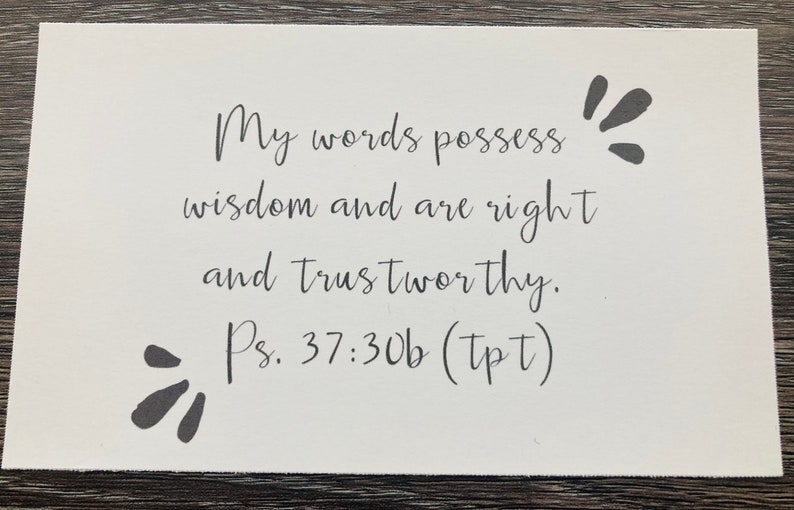 My words possess
wisdom and are right
and trustworthy.
Ps. 37:30b (tpt)